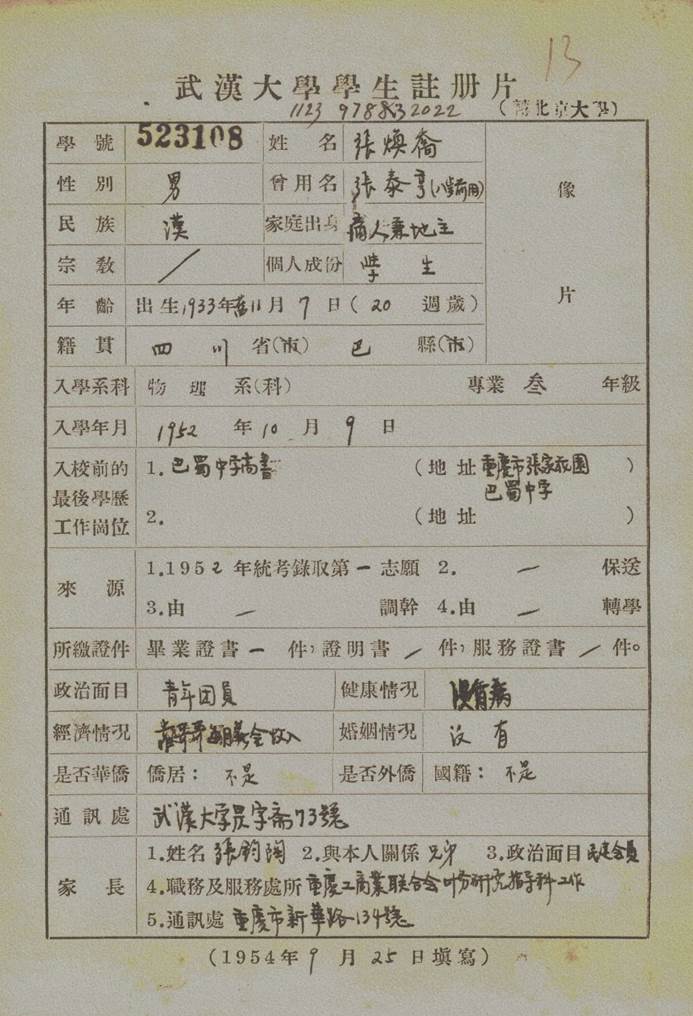 13
武漢大學學生註册片
1123 978832022 (蓋北京大學)
學號 523108 姓名 張煥喬
性別 男 曾用名 張泰亨(八歲前用) 像
民族 漢 家庭出身 商人兼地主
宗教 / 個人成份 學生
年齡 出生1933年舊11月7日(20週歲) 片
籍貫 四川省(市) 巴縣(市)
入學系科 物理系(科) 專業 叁 年級
入學年月 1952年10月9日
入校前的 1. 巴蜀中学高 (地址 重慶市張家花園)
最後學歷 巴蜀中学
工作崗位 2. (地址 )
1.1952年統考錄取第一志願 2. — 保送
來源
3.由 — 調幹 4.由 — 轉學
所繳證件 畢業證書一件,證明書/件,服務證書/件。
政治面目 青年団員 健康情況 沒有病
經濟情況 婚姻情況 没有
是否華僑 僑居: 不是 是否外僑 國籍: 不是
通訊處 武漢大学昃字斋73號
1.姓名 張鈞陶 2.與本人關係 兄弟 3.政治面目 民建会員
家長 4.職務及服務處所 重慶工商業联合会 研究指导科工作
5.通訊處 重慶市新華路134號
(1954年9月25日填寫)